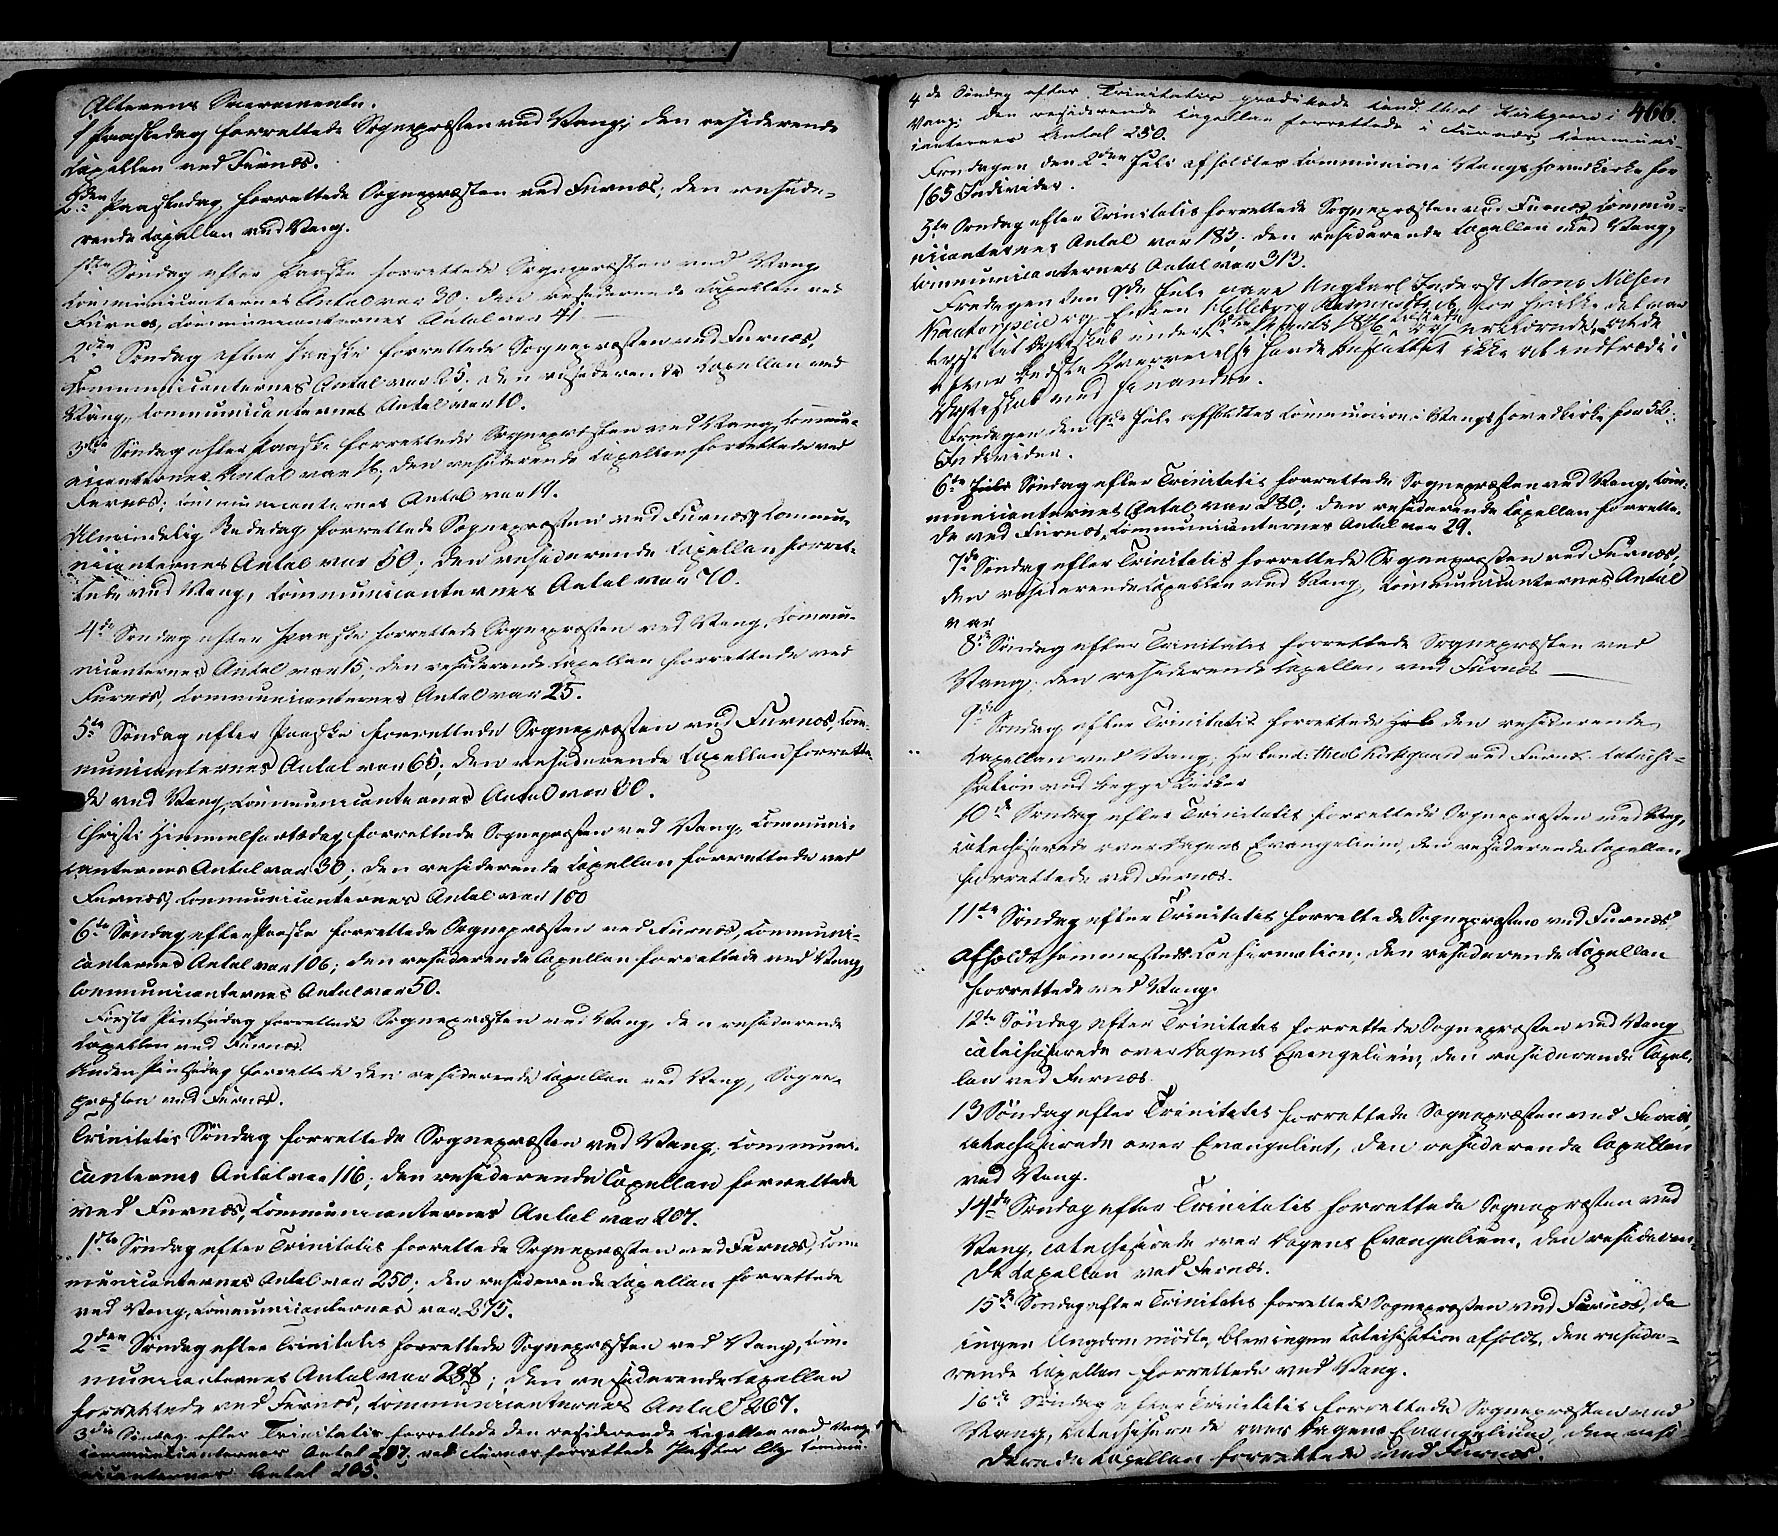 Alterens Sacramente.
1 Paaskedag forrettede Sognepræsten ved Vang; den residerende
Capellan ved Furnæs.
2den Paaskedag, forrettede Sognepræsten ved Furnæs; den reside-
rende Capellan ved Vang.
1ste Søndag efter Paaske forrettede Sognepræsten ved Vang
Communicanternes Antal var 30. den residerende Capellan ved
Furnæs, Communicanternes Antal var 41 —
2den Søndag efter Paaske forrettede Sognepræsten ved Furnæs,
Communicanternes Antal var 25. den residerende Capellan ved
Vang, Communicanternes Antal var 10.
3die Søndag efter Paaske forrettede Sognepræsten ved Vang, Commu-
nicanternes Antal var 16; den residerende Capellan forrettede ved
Furnæs; Communicanternes Antal var 19.
Almindelig Bededag forrettede Sognepræsten ved Furnæs, Commu-
nicanternes Antal var 50; den residerende Capellan forret-
tede ved Vang, Communicanternes Antal var 70.
4de Søndag efter Paaske forrettede Sognepræsten ved Vang, Commu-
nicanternes Antal var 15; den residerende Capellan forrettede ved
Furnæs, Communicanternes Antal var 25.
5te Søndag efter Paaske forrettede Sognepræsten ved Furnæs, Com-
municanternes Antal var 65; den residerende Capellan forrette-
de ved Vang, Communicanternes Antal var 80.
Christi Himmelfartsdag forrettede Sognepræsten ved Vang, Communi-
canternes Antal var 30; den residerende Capellan forrettede ved
Furnæs, Communicanternes Antal var 160
6te Søndag efter Paaske forrettede Sognepræsten ved Furnæs, Communi-
canternes Antal var 106; den residerende Capellan forrettede ved Vang,
Communicanternes Antal var 50.
Første Pintsedag forrettede Sognepræsten ved Vang, den residerende
Capellan ved Furnæs.
Anden Pintsedag forrettede den residerende Capellan ved Vang, Sogne-
præsten ved Furnæs.
Trinitatis Søndag forrettede Sognepræsten ved Vang. Communi-
canternes Antal var 116; den residerende Capellan forrettede
ved Furnæs, Communicanternes Antal var 207.
1ste Søndag efter Trinitatis forrettede Sognepræsten ved Furnæs, Com-
municanternes Antal var 250; den residerende Capellan forrettede
ved Vang, Communicanternes var 275.
2den Søndag efter Trinitatis forrettede Sognepræsten ved Vang, Com-
municanternes Antal var 288; den residerende Capellan
forrettede ved Furnæs, Communicanternes Antal 267.
3die Søndag efter Trinitatis forrettede den residerende Capellan ved Vang,
Communicanternes Antal 287. ved Furnæs forrettede Pastor Commu-
nicanternes Antal 205.
466.
4de Søndag efter Trinitatis prædikede Cand. theol. Kirkgaard i
Vang; den residerende Capellan forrettede i Furnæs, Communi-
canternes Antal 250.
Fredagen den 2den Juli afholdtes Communion i Vangs Hovedkirke for
165 Individer.
5te Søndag efter Trinitatis forrettede Sognepræsten ved Furnæs, Commu-
nicanternes Antal var 183; den residerende Capellan ved Vang,
Communicanternes Antal var 313.
Fredagen den 9de Juli vare Ungkarl Inderst Mons Nilsen
og Enken for hvilke det var
lyst til Ægteskab under 1846 erklærende, at de
efter bedste Overveielse havde besluttet ikke at indtræde i
Ægteskab med hinanden.
Fredagen den 9de Juli afholdtes Communion i Vangs Hovedkirke for 52
Individer.
6te Juli Søndag efter Trinitatis forrettede Sognepræsten ved Vang, Com-
municanternes Antal var 280. den residerende Capellan forrette-
de ved Furnæs, Communicanternes Antal var 29.
7de Søndag efter Trinitatis forrettede Sognepræsten ved Furnæs,
den residerende Capellan ved Vang, Communicanternes Antal
var
8de Søndag efter Trinitatis forrettede Sognepræsten ved
Vang; den residerende Capellan ved Furnæs —
9de Søndag efter Trinitatis forrettede den residerende
Capellan ved Vang, Hr Cand: theol Kirkgaard ved Furnæs. Catechi-
sation ved begge Kirker
10de Søndag efter Trinitatis forrettede Sognepræsten ved Vang,
catechiserede over Dagens Evangelium, den residerende Capellan
forrettede ved Furnæs.
11te Søndag efter Trinitatis forrettede Sognepræsten ved Furnæs,
afholdt sammesteds Confirmation; den residerende Capellan
forrettede ved Vang.
12te Søndag efter Trinitatis forrettede Sognepræsten ved Vang
catechiserede over Dagens Evangelium, den residerende Capel-
lan ved Furnæs.
13 Søndag efter Trinitatis forrettede Sognepræsten ved Furnæs,
catechiserede over Evangeliet, den residerende Capellan
ved Vang.
14de Søndag efter Trinitatis forrettede Sognepræsten ved
Vang, catechiserede over Dagens Evangelium. den residren-
de Capellan ved Furnæs.
15de Søndag efter Trinitatis forrettede Sognepræsten ved Furnæs, da
ingen Ungdom mødte, blev ingen Catechisation afholdt. den reside-
rende Capellan forrettede ved Vang.
16de Søndag efter Trinitatis forrettede Sognepræsten ved
Vang, catechiserede over Dagens Evangelium, den resi-
derende Capellan forrettede ved Furnæs.